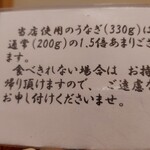 当店使用のうなぎ(330g)は
通常(200g)の1.5倍あまりござ
ます。
食べきれない場合は お持
帰り頂けますので、ご遠慮な
お申し付けくださいませ。